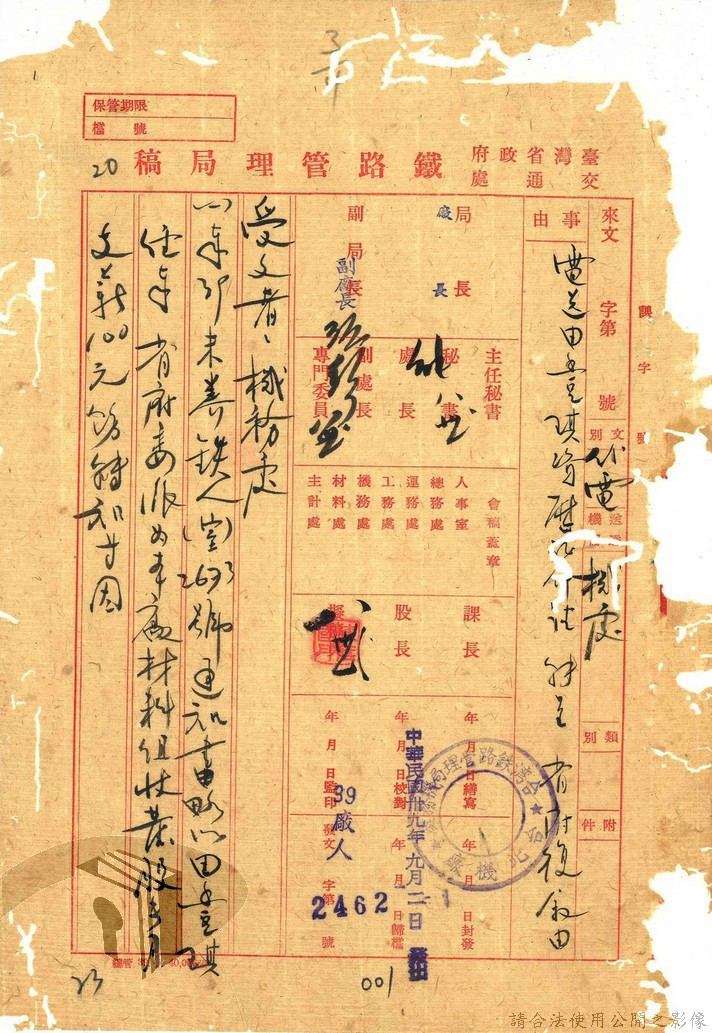 保管期限
檔 號
20
臺灣省政府
交通處
鐵路管理局稿
來文 字第 號
文別
代電
送達機關
機處
類別
附件
事由
電送田壹琪資歷證件請轉呈 省府復敘由
局長
廠長
副局長
副廠長
主任秘書
秘書
處長
副處長
專門委員
會稿蓋章
人事室
總務處
運務處
工務處
機務處
材料處
主計處
課長
股長
擬稿
年 月 日繕寫
年 月 日校對
年 月 日監印
年 月 日封發
年 月 日歸檔
發文 字第 號
39
廠人
2462
中華民國卅九年九月二日
台灣鐵路管理局
台北機廠
受文者:機務處
一、奉鈞未養鐵人(室)2673號通知書略以田壹琪
任事 省府委派為本廠材料組技業股員月
支薪100元飭轉知等因
23
001
請合法使用公開之影像